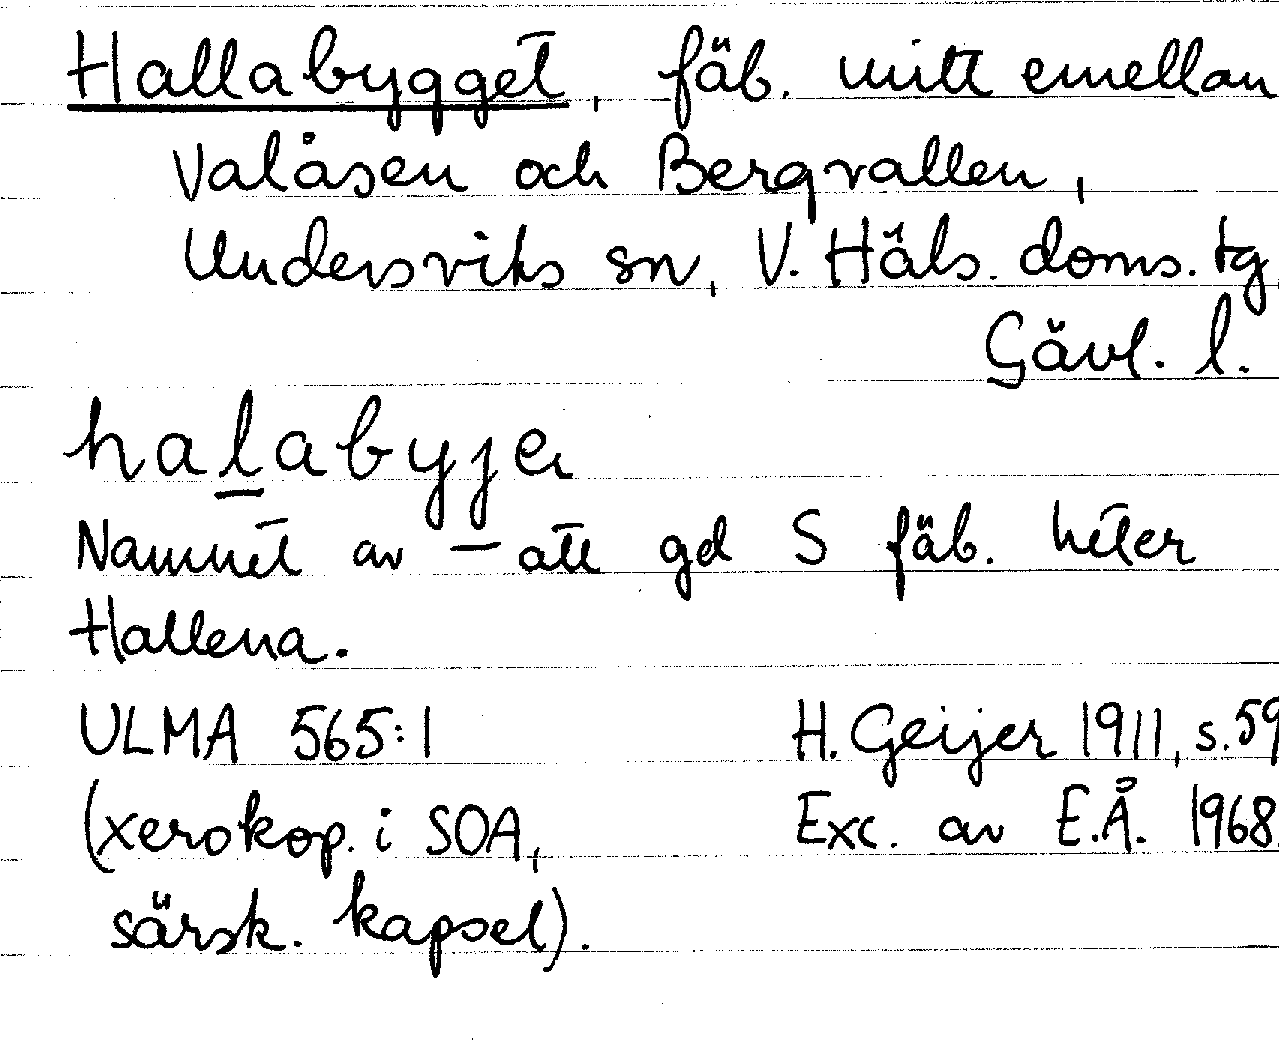 Hallabygget, fäb. mitt emellan
Valåsen och Bergvallen,
Undersviks sn, V. Häls. doms. tg,
Gävl. l.
halabyjeₗ
Namnet av — att gd S fäb. heter
Hallena.
ULMA 565:1 H. Geijer 1911, s. 59
(xerokop. i SOA, Exc. av E.Å. 1968.
särsk. kapsel).